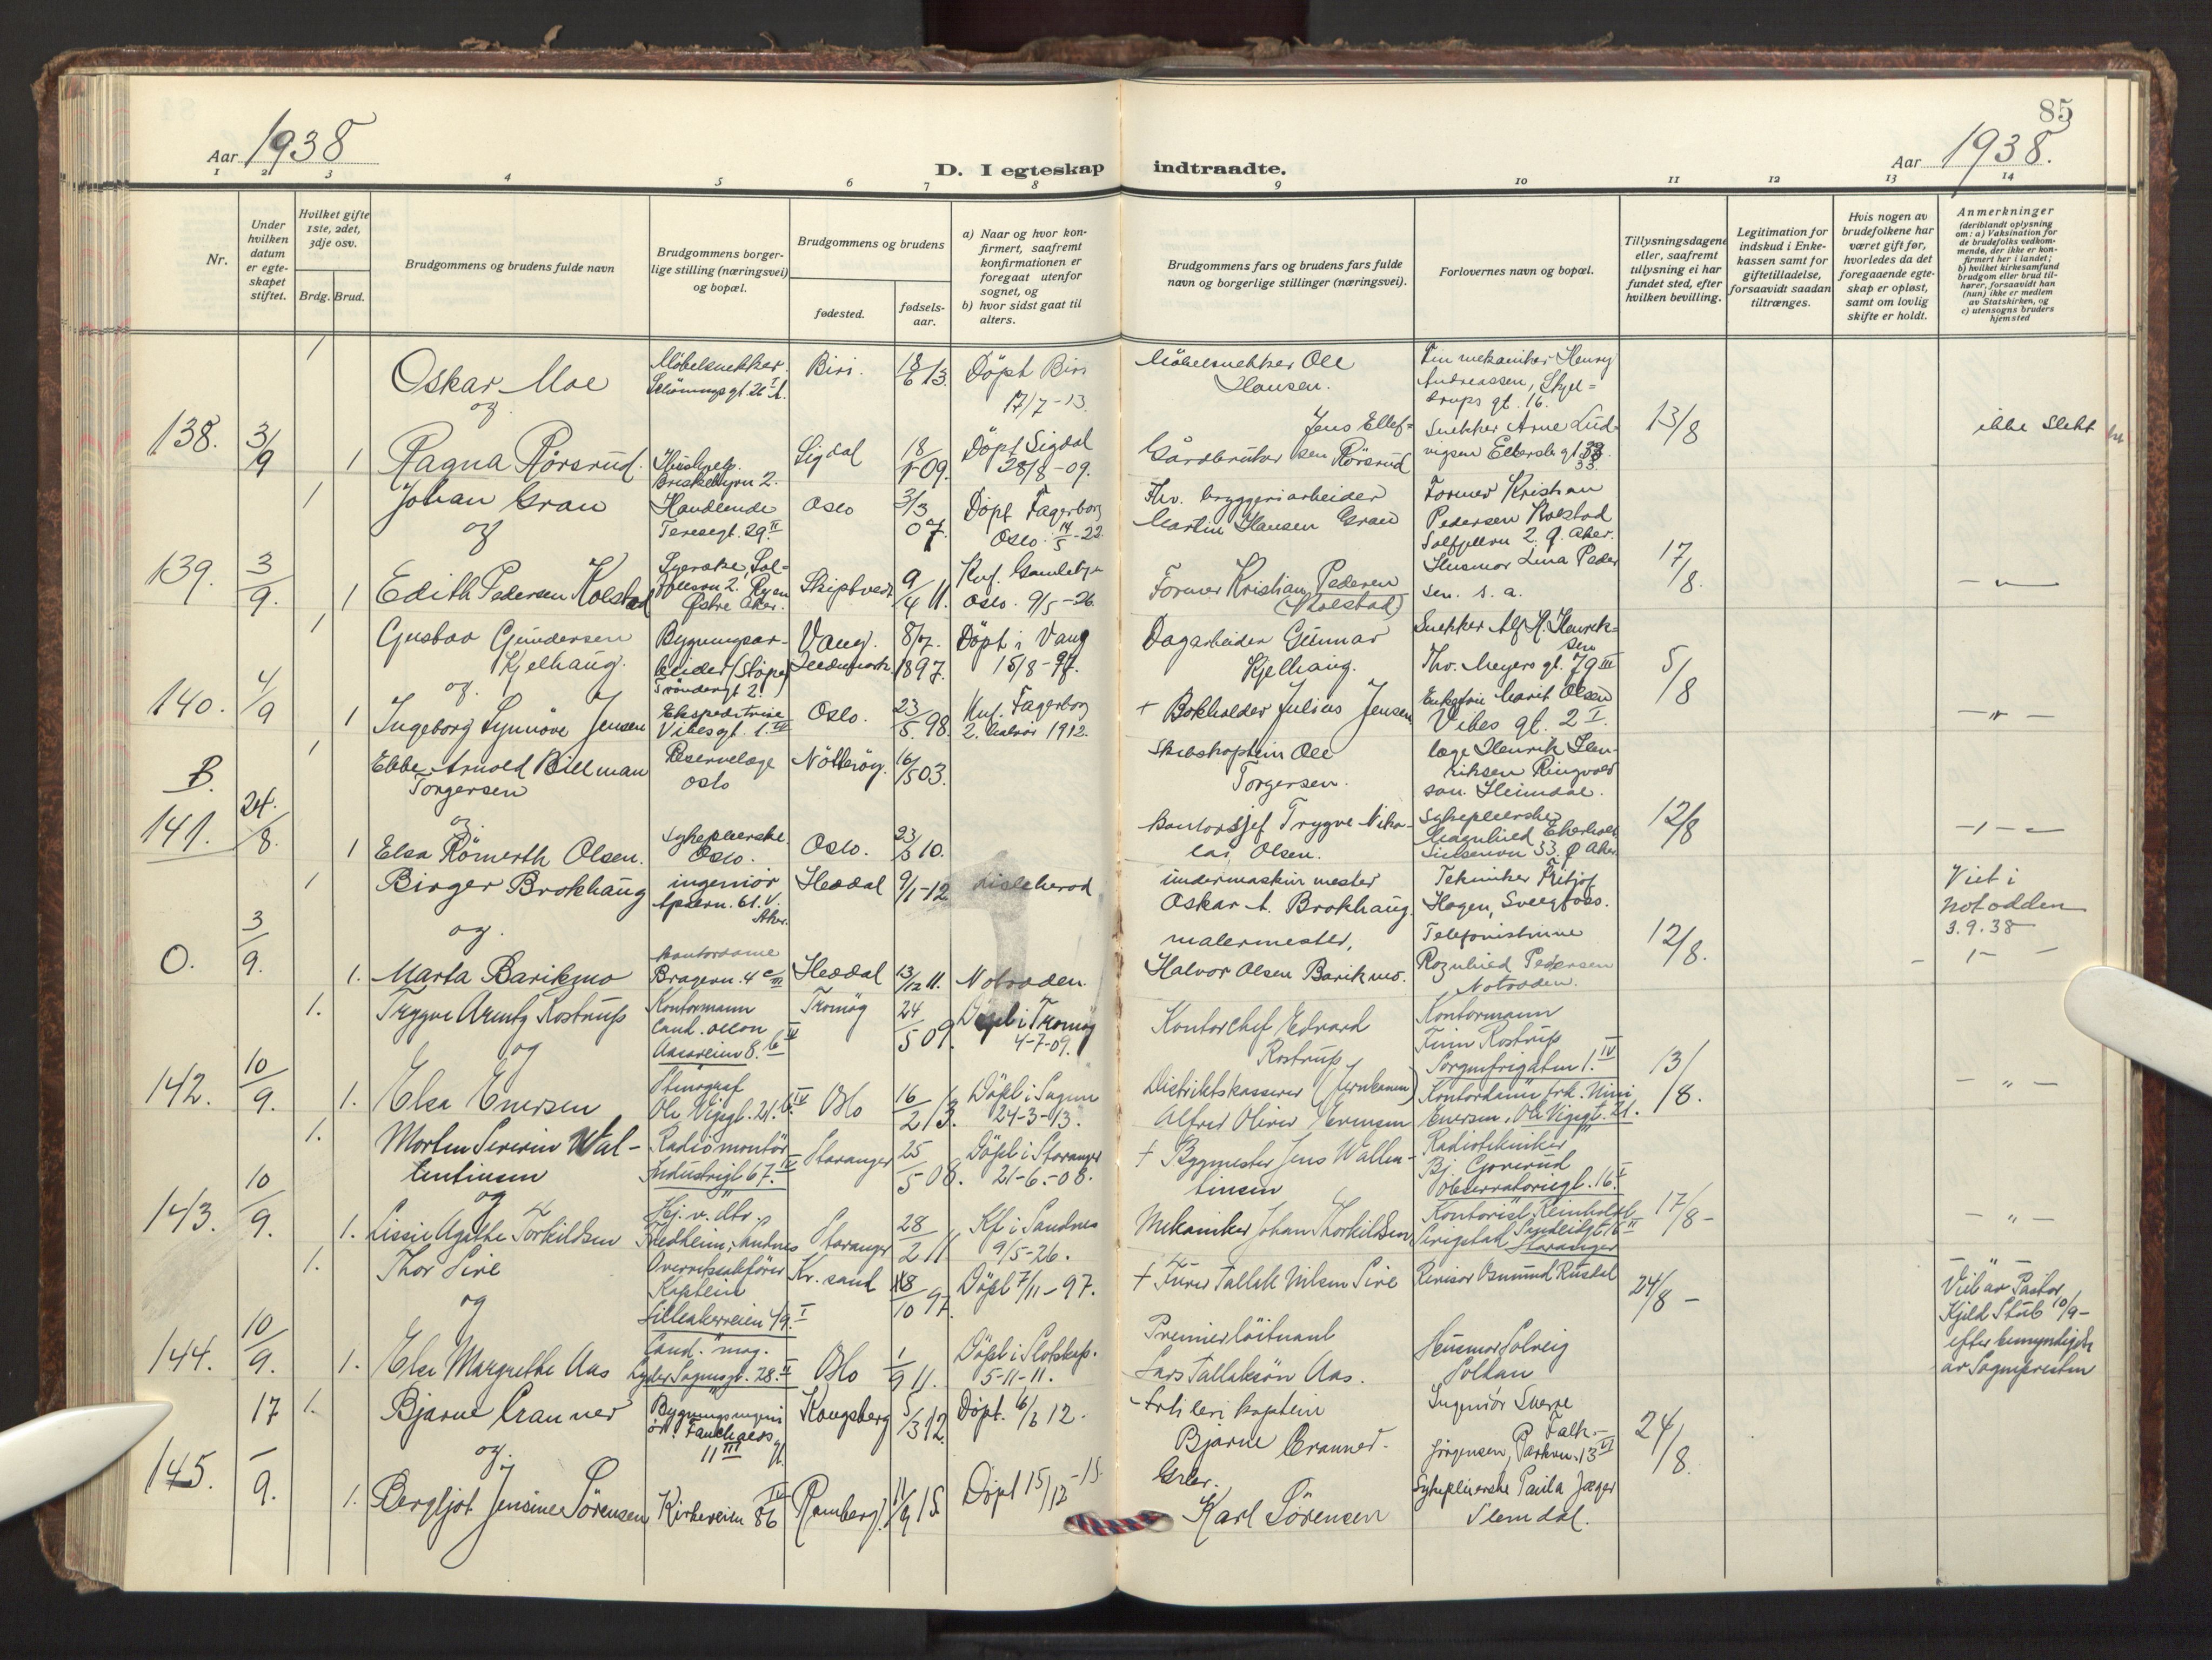 85
Aar 1938
D. I egteskap indtraadte.
Aar 1938.
1 2 3 4 5 6 7 8 9 10 11 12 13 14
Nr.
Under hvilken datum er egte-skapet stiftet.
Hvilket gifte 1ste, 2det, 3dje osv.
Brdg. Brud.
Brudgommens og brudens fulde navn
Brudgommens borger-lige stilling (næringsvei) og bopæl.
Brudgommens og brudens
fødested.
fødsels-aar.
a) Naar og hvor kon-firmert, saafremt konfirmationen er foregaat utenfor sognet, og
b) hvor sidst gaat til alters.
Brudgommens fars og brudens fars fulde navn og borgerlige stillinger (næringsvei).
Forlovernes navn og bopæl.
Tillysningsdagene eller, saafremt tillysning ei har fundet sted, efter hvilken bevilling.
Legitimation for indskud i Enke-kassen samt for giftetilladelse, forsaavidt saadan tiltrænges.
Hvis nogen av brudefolkene har været gift før, hvorledes da det foregaaende egte-skap er opløst, samt om lovlig skifte er holdt.
Anmerkninger (deriblandt oplysning om: a) Vaksination for de brudefolks vedkom-mende, der ikke er kon-firmert her i landet; b) hvilket kirkesamfund brudgom eller brud til-hører, forsaavidt han (hun) ikke er medlem av Statskirken, og c) utensogns bruders hjemsted
138. 3/9
1 Oskar Moe
Møbelsnekker
Biri. 18/6 13
Döpt Biri
17/7-13.
Møbelsnekker Ole
Hansen.
Finmekaniker Henry
Andreassen,
gt. 16.
og
1 Ragna Rörsrud.
Hushjelp.
Briskebyvn 2.
Sigdal 09.
Döpt Sigdal
28/8-09.
Jens Ellef-
Gårdbruker sen Rörsrud
Snekker Arne Lud-
vigsen
13/8
ikke slekt
139. 3/9.
1 Johan Gran
Handlende
Teresegt. 29 II
Oslo 3/3 07
Döpt Fagerborg
Oslo 14/5-22
Fhv. bryggeriarbeider
Martin Hansen Gran
Former Kristian
Pedersen Kolstad
Solfjellvn 2. Ø. Aker.
og
1 Edith Pedersen Kolstad
Syerske, Sol-
fjellvn 2. Ryen
Østre Aker.
Skiptvedt 9/4 11.
Knf. Gamlebyen
Oslo. 9/5-26
Former Kristian Pedersen
(Kolstad)
Husmor Lina Peder
sen. s. a.
17/8.
- " -
140. 4/9
1 Gustav Gundersen
Kjelhaug.
Bygningsar-
beider (Støper)
Tröndergt 2.
Vang. Hedmark 8/7. 1897.
Döpt i Vang
15/8-97.
Dagarbeider Gunnar
Kjelhaug.
Snekker Alf H. Henrik-
sen
Thv. Meyers gt. 79 III
og.
1 Ingeborg Synnöve Jensen
Ekspeditrise
Vibesgt.
Oslo. 23/5. 98.
Knf. Fagerborg
1912.
+ Bokholder Julius Jensen
Enkefru Marit Olsen
Vibes gt. 2 I.
5/8
- " -
B.
141. 24./8.
1 Ebbe Arnold Billman
Torgersen
Reservelæge
Oslo
Nötteröy. 16/5 03.
Skibskaptein Ole
Torgersen.
læge Henrik Hen-
riksen Ringvold
san. Heimdal.
og
1 Elsa Römerth Olsen.
Sykepleierske.
Oslo.
Oslo. 23/3 10.
Kontorsjef Trygve Niko-
lai Olsen.
Sykepleierske
Magnhild
Sinsenvn 33 Ø Aker
12/8
- " -
O. 3/9.
1 Birger Brokhaug
ingeniør
61. V. Aker.
Heddal 9/1-12
Lisleherad
undermaskinmester
Oskar A. Brokhaug.
Tekniker Fritjof
Hagen, Svelgfoss.
Viet i
Notodden
3.9.38
og.
1. Marta Barikmo
Kontordame
Heddal 13/12 11.
Notodden.
malermester,
Halvor Olsen Barikmo.
Telefonistinne
Ragnhild Pedersen
Notodden.
12/8.
- " -
142. 10/9.
1. Trygve Arentz Rostrup
Kontormann
Cand. oecon
Aasaveien 8.
Tromöy 24/5 09.
Döpt i Tromöy
4-7-09.
Kontorchef Edvard
Rostrup
Kontormann
Finn Rostrup
Sorgenfrigaten 1. IV
og
1. Elsa Enersen
Stenograf
Ole Vigsgt. 21. IV
Oslo 16/2 13.
Döpt i Sogn
24-3-13.
Distriktskasserer (Jernbanen)
Alfred Oliver Enersen
Kontordame frk. Mimi
Enersen, Ole Vigsgt. 21.
13/8.
- " -
143. 10/9.
1. Morten Severin Wal-
lentinsen
Radiomontör
Industrigt 67. IV
Stavanger 25/5 08.
Döpt i Stavanger
21-6-08.
+ Bygmester Jens Wallen-
tinsen
Radiotekniker
Bj. Gjorerud
Observatoriegt. 16 I
og
1. Lissie Agathe Torkildsen
Hj. v. dtr.
Fredheim, Sandnes
Stavanger 28/2 11
Kf i Sandnes
9/5-26.
Mekaniker Johan Thorkildsen
Kontorist Reinholdt
Stavanger
17/8-
- " -
144. 10/9.
1. Thor Sire
Overrettssakfører
Kaptein
Lilleakerveien 49. I
Kr. sand 18/10 97.
Döpt 7/11-97.
+ Furer Tallak Nilsen Sire
Revisor Osmund Rustad
Viet av Pastor
Kjeld Stub 10/9-
efter bemyndigelse
av Sognepresten
og
1. Else Margrethe Aas
Cand. mag.
Lyder Sagensgt. 28. II
Oslo 1/9 11.
Döpt i Slotskap.
5-11-11.
Premierlöitnant
Lars Tallakson Aas.
Husmor Solveig
Solhau
24/8 -
145. 17/9.
1. Bjarne Cranner
Bygningsingeni
ör. Fauchalds
11 III gt.
Kongsberg 5/3 12.
Döpt.
Artilleri kaptein
Bjarne Cranner.
Ingeniör Sverre
Falk-
Jörgensen, Parkvn. 13 II
og.
1. Bergljot Jensine Sörensen
Kirkeveien 86 IV
Ramberg. 11/9 15
Döpt 15/12-15.
Grbr.
Karl Sörensen
Sykepleierske Paula Jæger
Slemdal.
24/8.